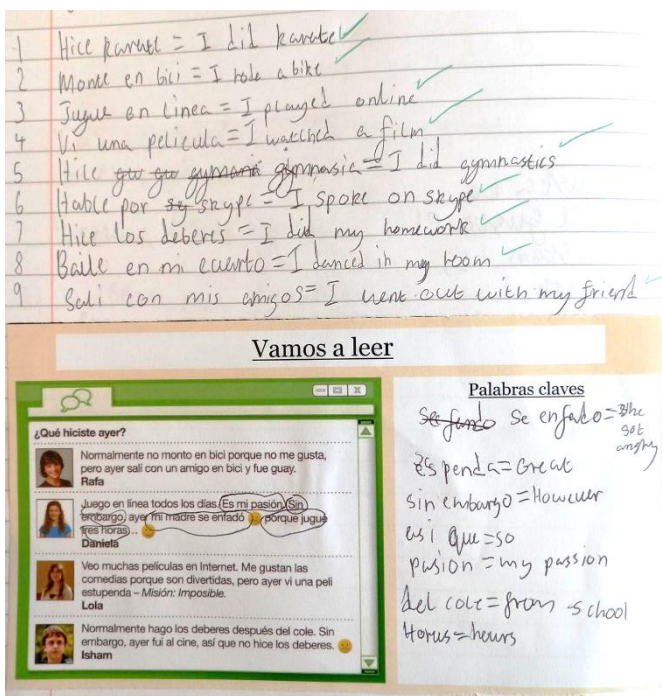 1 Hice karate = I did karate
2 Monte en bici = I rode a bike
3 Jugue en linea = I played online
4 Vi una pelicula = I watched a film
5 Hice gymnasia = I did gymnastics
6 Hable por skype = I spoke on skype
7 Hice los deberes = I did my homework
8 Baile en mi cuarto = I danced in my room
9 Sali con mis amigos = I went out with my friend
Vamos a leer
¿Qué hiciste ayer?
Normalmente no monto en bici porque no me gusta,
pero ayer salí con un amigo en bici y fue guay.
Rafa
Juego en línea todos los días. Es mi pasión. Sin
embargo, ayer mi madre se enfadó porque jugué
tres horas...
Daniela
Veo muchas películas en Internet. Me gustan las
comedias porque son divertidas, pero ayer vi una peli
estupenda – Misión: Imposible.
Lola
Normalmente hago los deberes después del cole. Sin
embargo, ayer fui al cine, así que no hice los deberes.
Isham
Palabras claves
Se enfado = she
got
angry
penda = Great
sin embargo = However
asi que = so
pasion = my passion
del cole = from school
Horus = hours